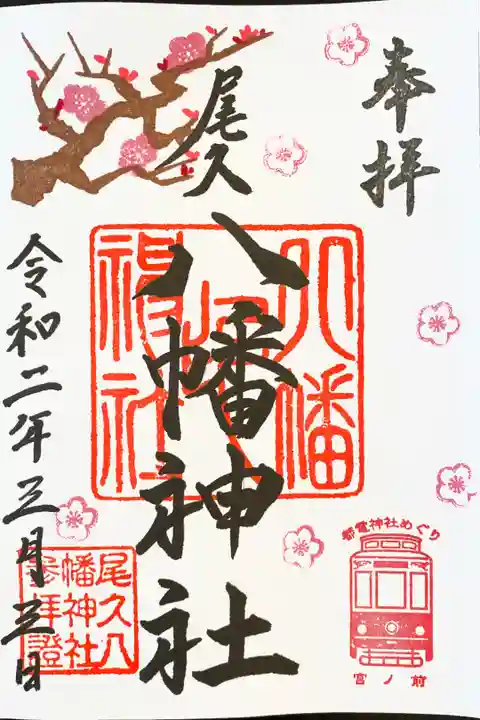 奉拝
尾久
八幡神社
八幡
神社
令和二年三月三日
尾久八
幡神社
参拝證
都電神社めぐり
宮ノ前